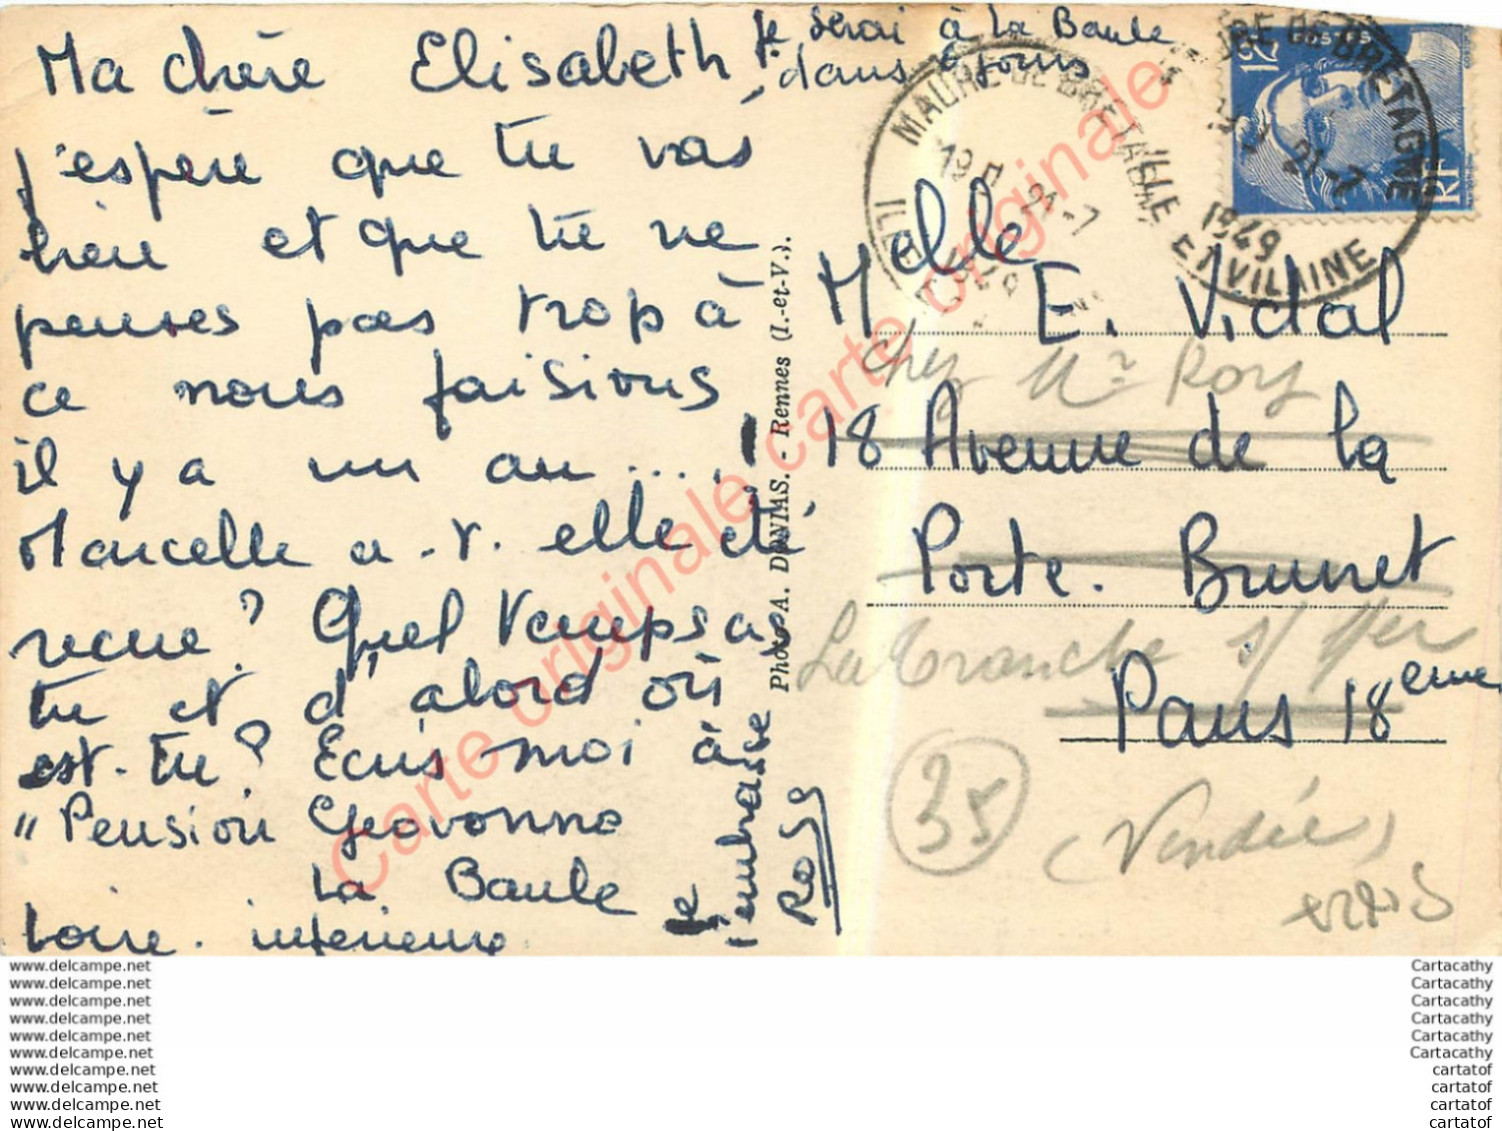 Ma chère Elisabeth,
Je serai à La Baule
dans 8 jours
j'espère que tu vas
bien et que tu ne
penses pas trop à
ce nous faisions
il y a un an....!
Marcelle a-t-elle été
recue? Quel temps as
tu et d'abord où
est-tu? Ecris moi à
"Pension Geovonno
La Baule
Loire-inferieure
Je
t'embrasse
Rosy
Photo A. DANIAS. - Rennes (I.-et-V.).
MAURE DE BRETAGNE
19 H 21-7
1949
ILLE
MAURE DE BRETAGNE
19 H 21-7
1949
ILLE ET VILAINE
12
POSTES
RF
Melle E. Vidal
chez Mr Rory
18 Avenue de la
Porte. Brunet
La Tranche s/ Mer
Paris 18eme
35
(Vendée)
Carte originale carte originale carte originale
www.delcampe.net
www.delcampe.net
www.delcampe.net
www.delcampe.net
www.delcampe.net
www.delcampe.net
www.delcampe.net
www.delcampe.net
www.delcampe.net
www.delcampe.net
Cartacathy
Cartacathy
Cartacathy
Cartacathy
Cartacathy
Cartacathy
cartatof
cartatof
cartatof
cartatof